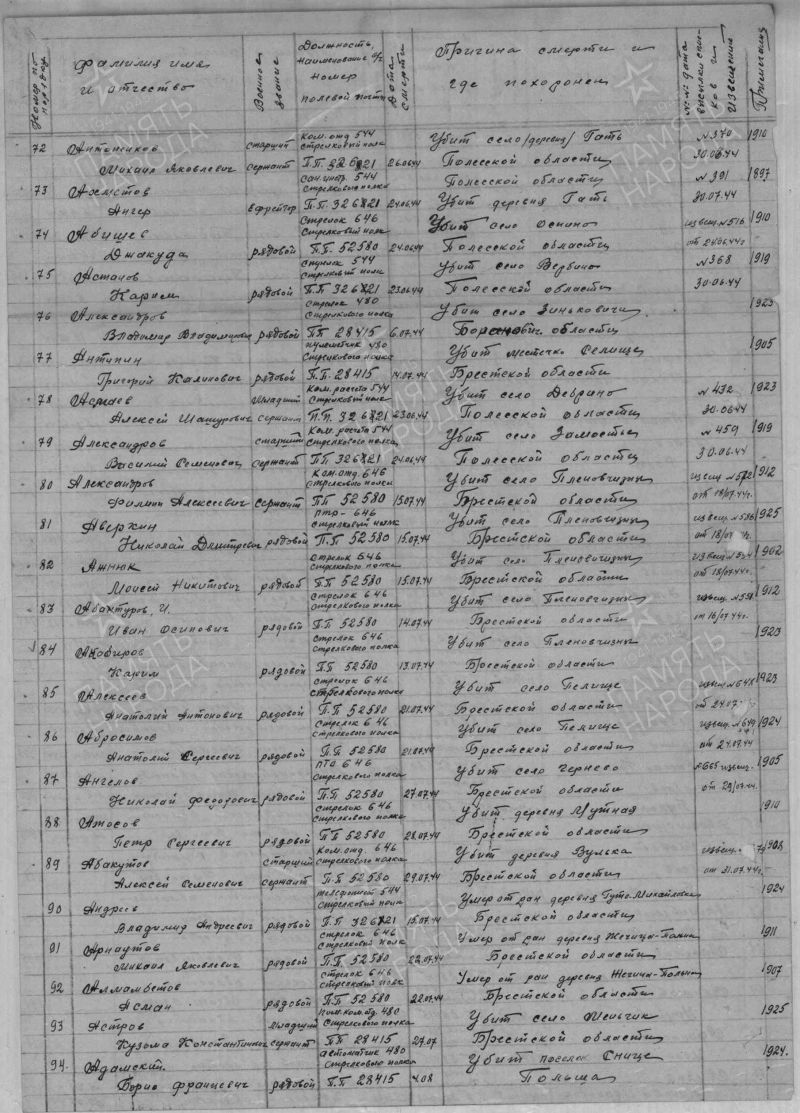 Номер по порядку
фамилия имя и отчество
Военное звание
Должность, наименование ч/с номер полевой почты
Дата смерти
Причина смерти и где похоронен
№№ дата высылки списков и извещение
Примечание
72 Антоников старший ком. отд. 544 стрелковый полк Убит село /деревня/ Гать №370 1910
Михаил Яковлевич сержант П.П. 32621 26.06.44 Полесской области 30.06.44
73 Ахметов сан. инстр. 544 стрелкового полка Полесской области №391 1897
Ангер ефрейтор П.П. 32621 24.06.44 Убит деревня Гать 30.07.44
74 Абишев стрелок 646 стрелковый полк Убит село извещ. №516 1910
Джакуда рядовой П.П. 52580 24.06.44 Полесской области от 24.06.44г
75 Астанов стрелок 544 стрелковый полк Убит село Вербино №368 1919
Карим рядовой П.П. 32621 23.06.44 Полесской области 30.06.44
76 Александров стрелок 480 стрелкового полка Убит село Зиньковичи 1923
Владимир Владимирович рядовой П.П 28415 6.07.44 области
77 Антипин пулеметчик 480 стрелкового полка Убит местечко Селище 1905
Григорий Калинович рядовой П.П. 28415 14.07.44 Брестской области
78 Асмаев младший ком. расчета 544 стрелковый полк Убит село Дебрано №432 1923
Алексей Шатурович сержант П.П. 32621 23.06.44 Полесской области 30.06.44
79 Александров старший ком. расчета 544 стрелкового полка Убит село Замостье №459 1919
Василий Семенович сержант ПП 32621 24.06.44 Полесской области 30.6.44
80 Александров ком. отд. 646 стрелкового полка Убит село Пленовчизны извещ. №572 1912
Филипп Алексеевич сержант ПП 52580 15.07.44 Брестской области от 18/07.44г.
81 Аверкин птр-646 стрелковый полк Убит село Пленовчизны извещ. №586 1925
Николай Дмитревич рядовой П.П 52580 15.07.44 Брестской области от 18/07
82 Ажнюк стрелок 646 стрелкового полка Убит село Пленовчизны извещ. №534 1902
Моисей Никитович рядовой ПП 52580 15.07.44 Брестской области от 18/07.44г.
83 Абактуров, И. стрелок 646 стрелкового полка Убит село Пленовчизны извещ. №558 1912
Иван Осипович рядовой П.П 52580 14.07.44 Брестской области от 16/07.44г.
84 Акабиров стрелок 646 стрелкового полка Убит село Пленовчизны 1923
Карим рядовой ПП 52580 13.07.44 Брестской области
85 Алексеев стрелок 646 стрелкового полка Убит село Пелище извещ. №648 1923
Анатолий Антонович рядовой П.П 52580 21.07.44 Брестской области от 24.07
86 Абросимов стрелок 646 стрелкового полка Убит село Пелище извещ. №649 1924
Анатолий Сергеевич рядовой П.П 52580 21.07.44 Брестской области от 24.07.44
87 Ангелов пта 646 стрелкового полка Убит село Чернево №665 извещ. 1905
Николай Федорович рядовой ПП 52580 27.07.44 Брестской области от 29/07.44.
88 Амосов стрелок 646 стрелкового полка Убит деревня Мутная 1910
Петр Сергеевич рядовой П.П 52580 28.07.44 Брестской области
89 Абакутов старший ком. отд. 646 стрелкового полка Убит деревня Вулька извещ. 1908
Алексей Семенович сержант П.П 52580 29.07.44 Брестской области от 31.07.44г.
90 Андреев телефонист 544 стрелковый полк Умер от ран деревня Гуто-Михайловка 1924
Владимир Андреевич рядовой П.П 32621 15.07.44 Брестской области
91 Арнаутов стрелок 646 стрелковый полк Умер от ран деревня 1911
Михаил Яковлевич рядовой П.П. 52580 22.07.44 Брестской области
92 Алмамбетов стрелок 646 стрелковый полк Умер от ран деревня 1907
Асман рядовой П.П 52580 22.07.44 Брестской области
93 Астров младший пом. ком. отд. 480 стрелкового полка Убит село Мельчик 1925
Кузьма Константинович сержант ПП 28415 27.07 Брестской области
94. Адамский. автоматчик 480 стрелкового полка Убит поселок Снище 1924.
Борис францевич рядовой П.П 28415 4.08 Польша
ПАМЯТЬ НАРОДА